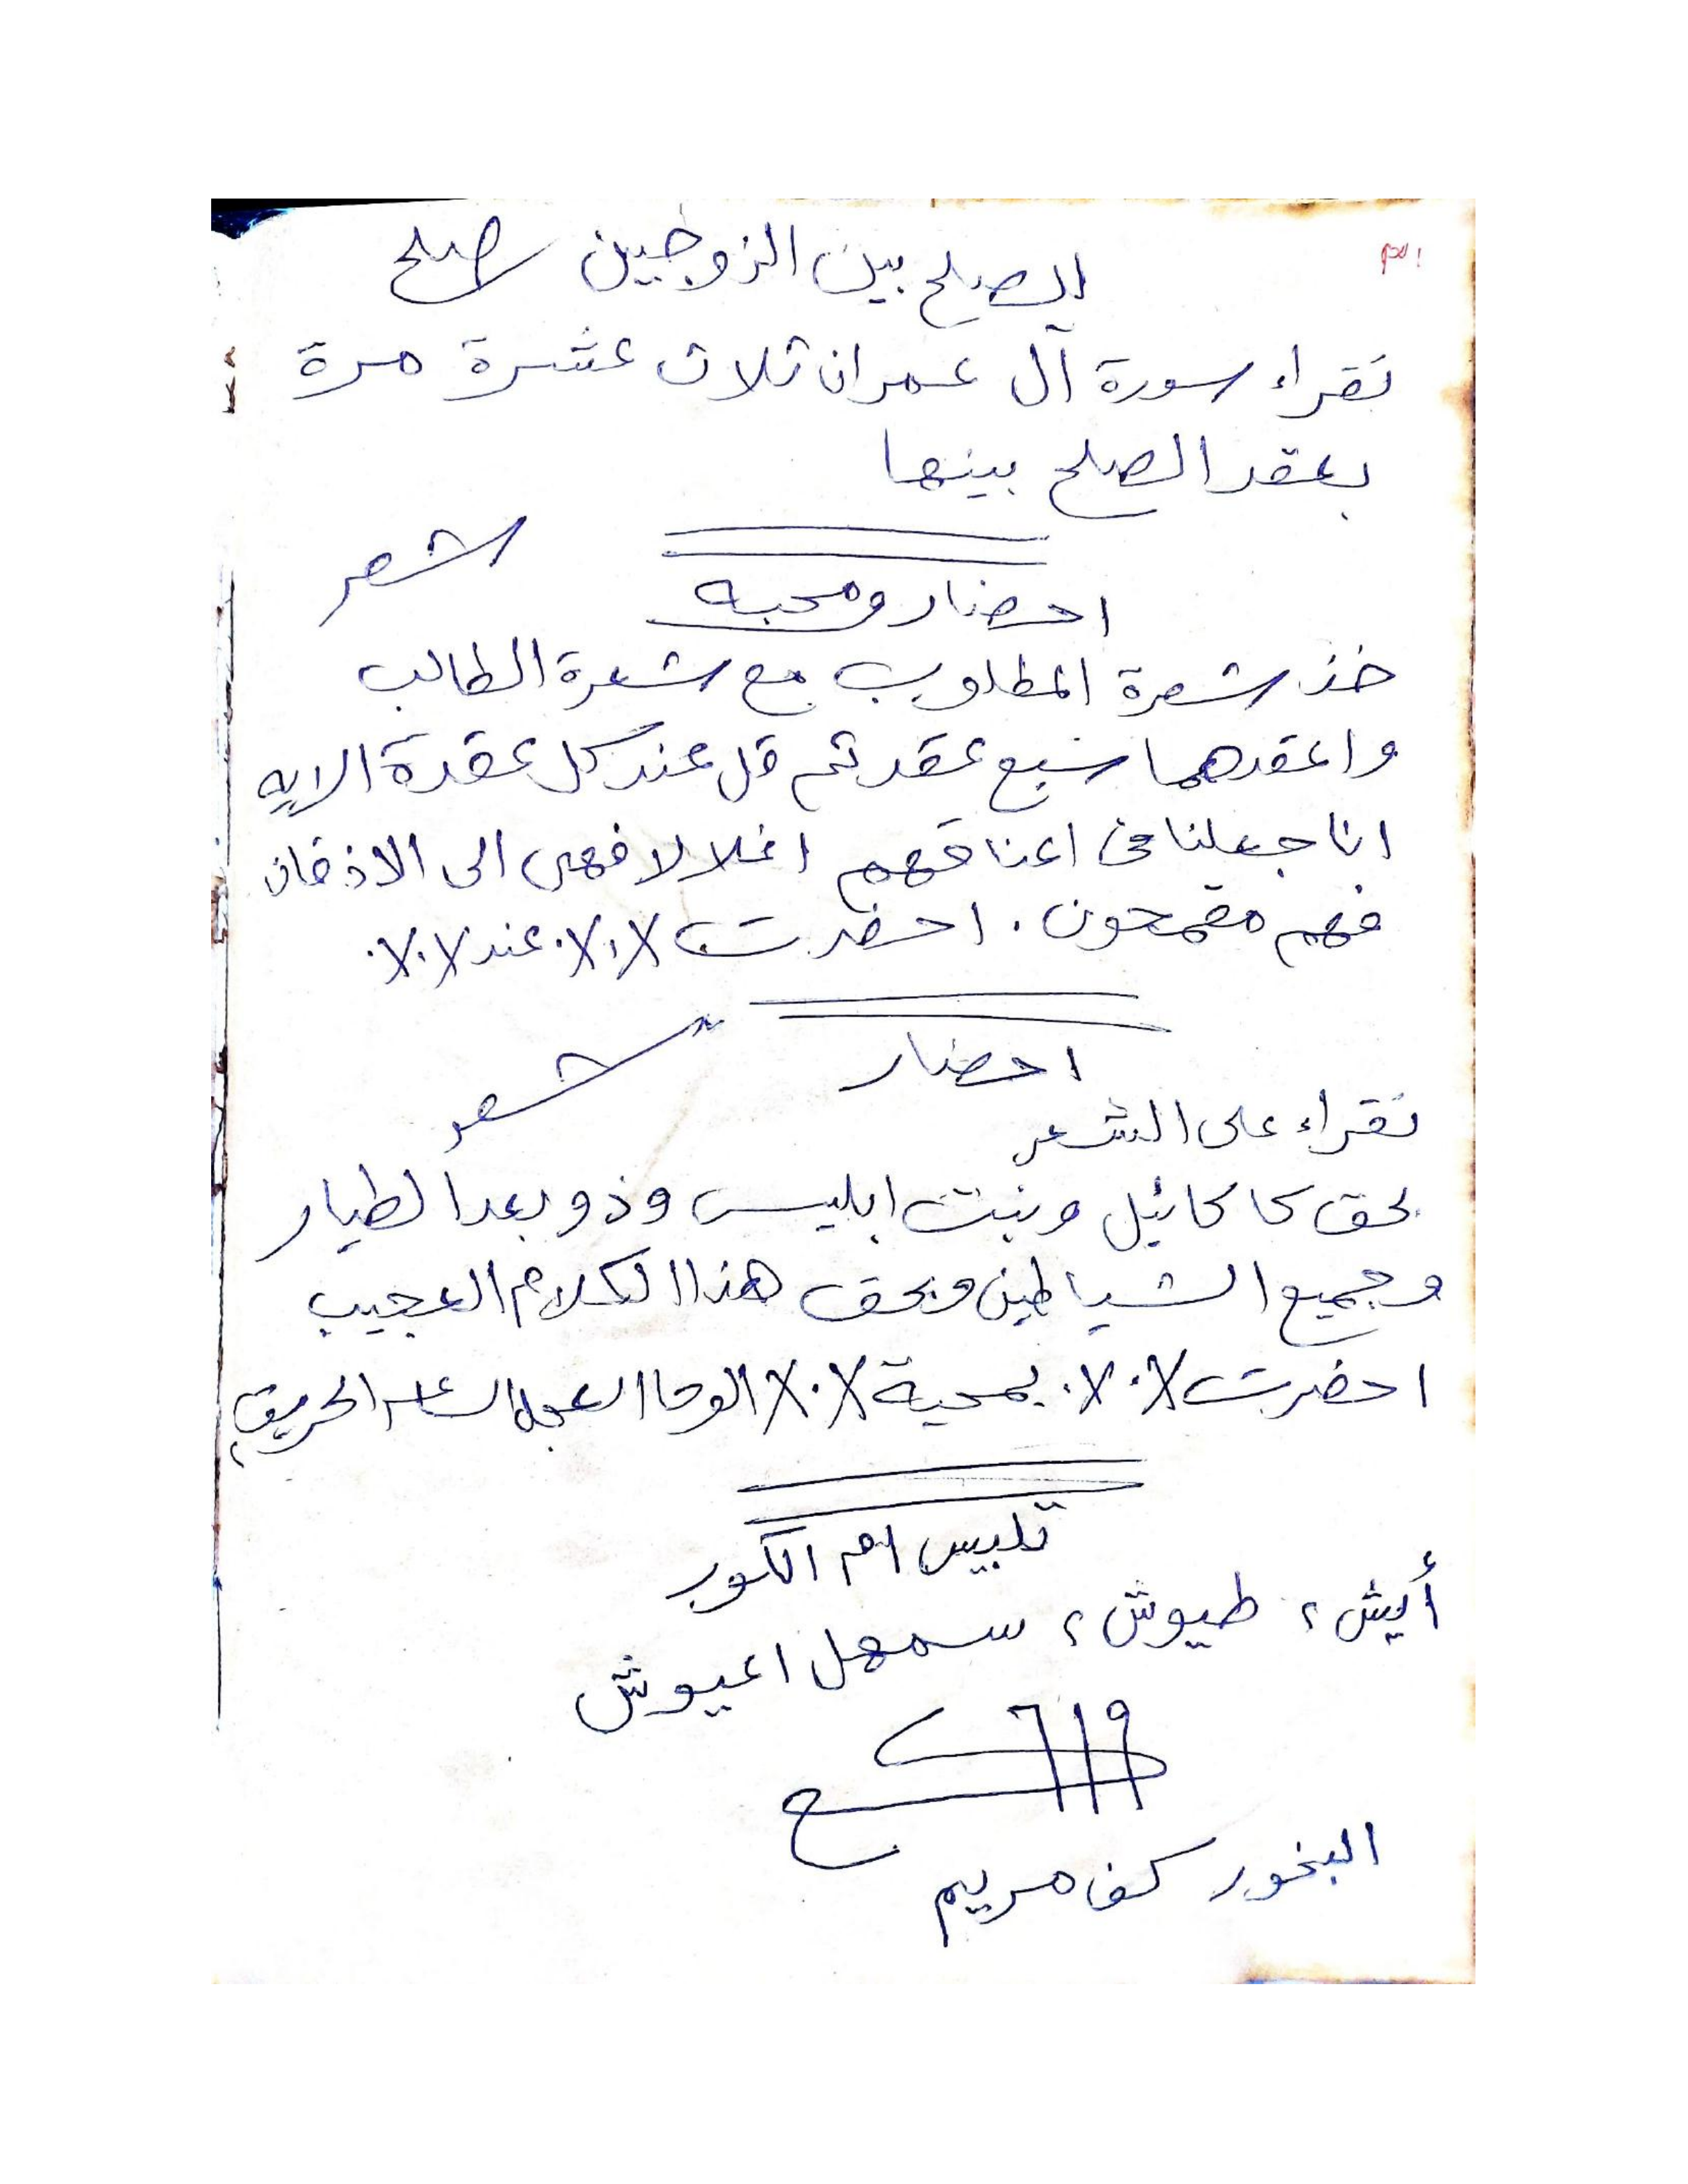 الصلح بين الزوجين صلح
تقراء سورة آل عمران ثلاث عشرة مرة
بعقد الصلح بينها
شعر
احضار ومحبه
خذ شعرة المطلوب مع شعرة الطالب
واعقدهما سبع عقد ثم قل عند كل عقدة الايه
انا جعلنا في اعناقهم اغلالا فهى الى الاذقان
فهم مقمحون . احضرت ٧.٧. عند ٧.٧.
احضار
شعر
تقراء على الشعر
بحق كاكائيل وبنت ابليس وذوبعد الطيار
وجميع الشياطين وبحق هذا الكلام العجيب
احضرت بمحبة الوحا العجل الساعه الحريق
تلبيس ام الكور
أيش ٢ طيوش ٢ سمهل اعيوش
البخور كف مريم